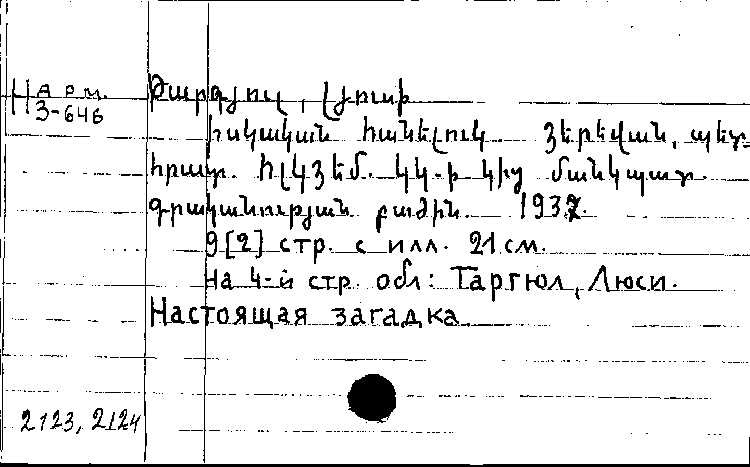 Н арм.
3-646
Թարգյուլ, Լյուսի
Իսկական հանելուկ. Յերեվան, պետ.
հրատ. ՀԼԿՅԵՄ. ԿԿ-ի կից մանկպատ.
գրականության բաժին. 1937.
9[2] стр. с илл. 21 см.
На 4-й стр. обл: Таргюл, Люси.
Настоящая загадка
2123, 2124